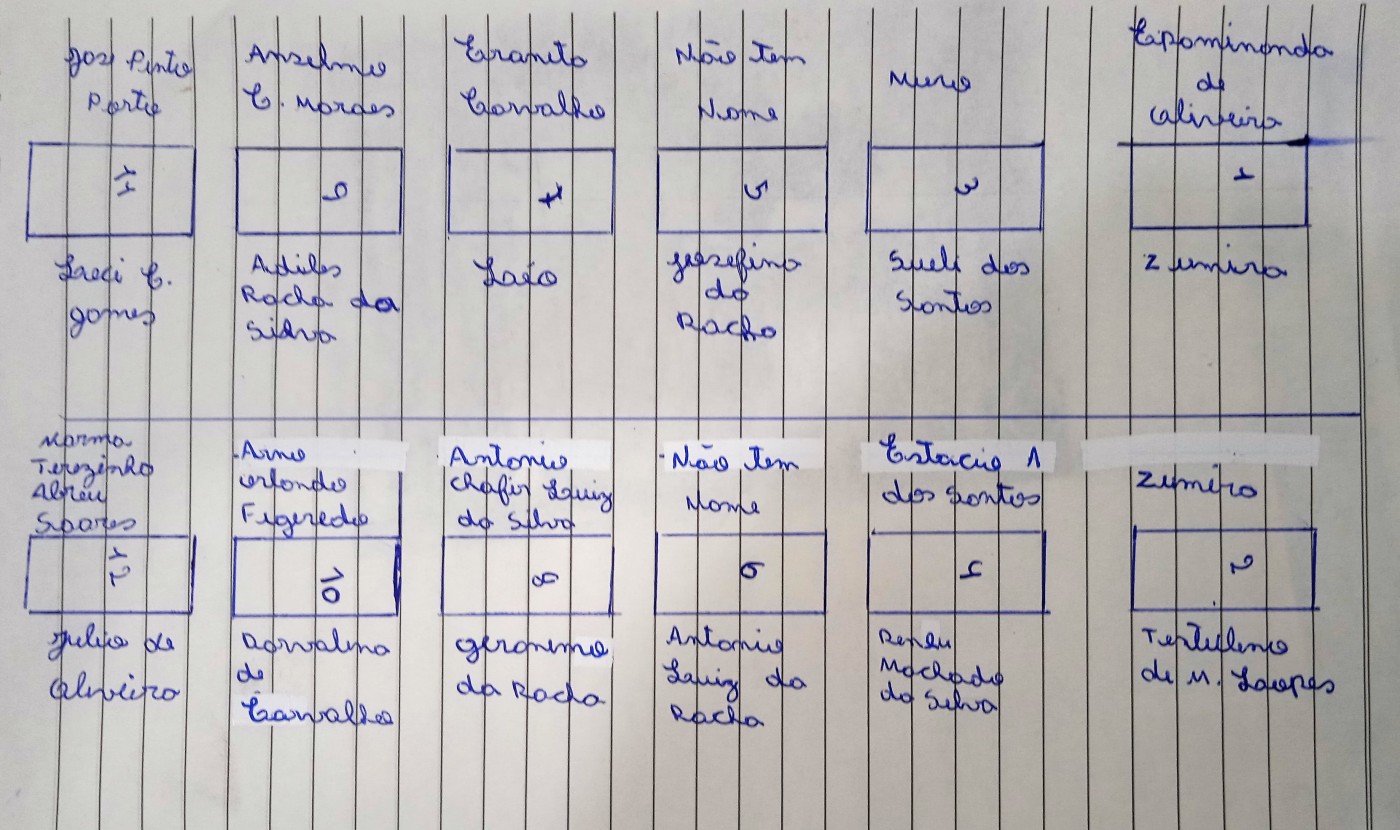 José Pinto
Porto
11
Laeci C.
gomes
Anselmo
C. Moraes
9
Adiles
Rocha da
Silva
Eranito
Carvalho
7
Laéo
Não tem
Nome
5
Josefina
da
Rocha
Muro
3
Sueli dos
Santos
Epominonda
de
Oliveira
1
Zumira
Marma
Terezinha
Abreu
Soares
12
Julio de
Oliveira
Arno
orlando
Figeredo
10
Dorvalina
de
Carvalho
Antonio
Luiz
da Silva
8
geronimo
da Rocha
Não tem
Nome
6
Antonio
Luiz da
Rocha
Estacio A
dos Santos
4
Machado
da Silva
Zumira
2
de M. Loopes